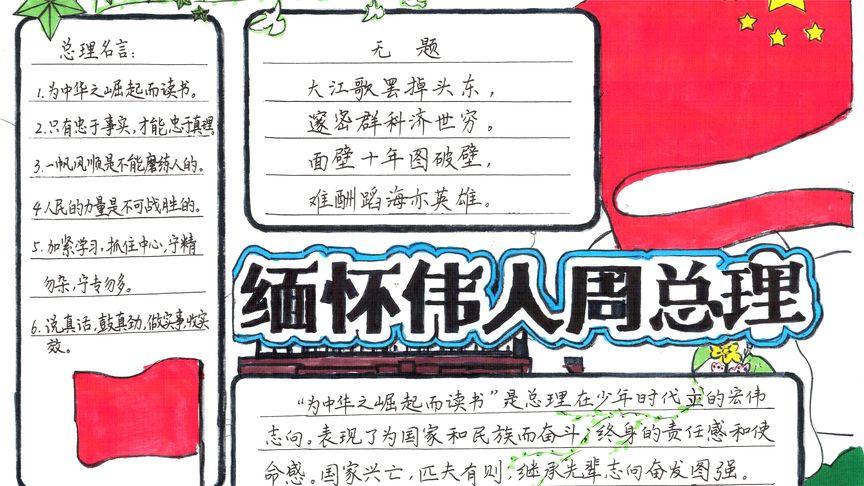 总理名言：
1.为中华之崛起而读书。
2.只有忠于事实，才能忠于真理。
3.一帆风顺是不能磨练人的。
4.人民的力量是不可战胜的。
5.加紧学习，抓住中心，宁精
勿杂，宁专勿多。
6.说真话，鼓真劲，做实事，收实
效。
无题
大江歌罢掉头东，
邃密群科济世穷。
面壁十年图破壁，
难酬蹈海亦英雄。
缅怀伟人周总理
“为中华之崛起而读书”是总理在少年时代立的宏伟
志向。表现了为国家和民族而奋斗，终身的责任感和使
命感。国家兴亡，匹夫有则，继承先辈志向奋发图强。